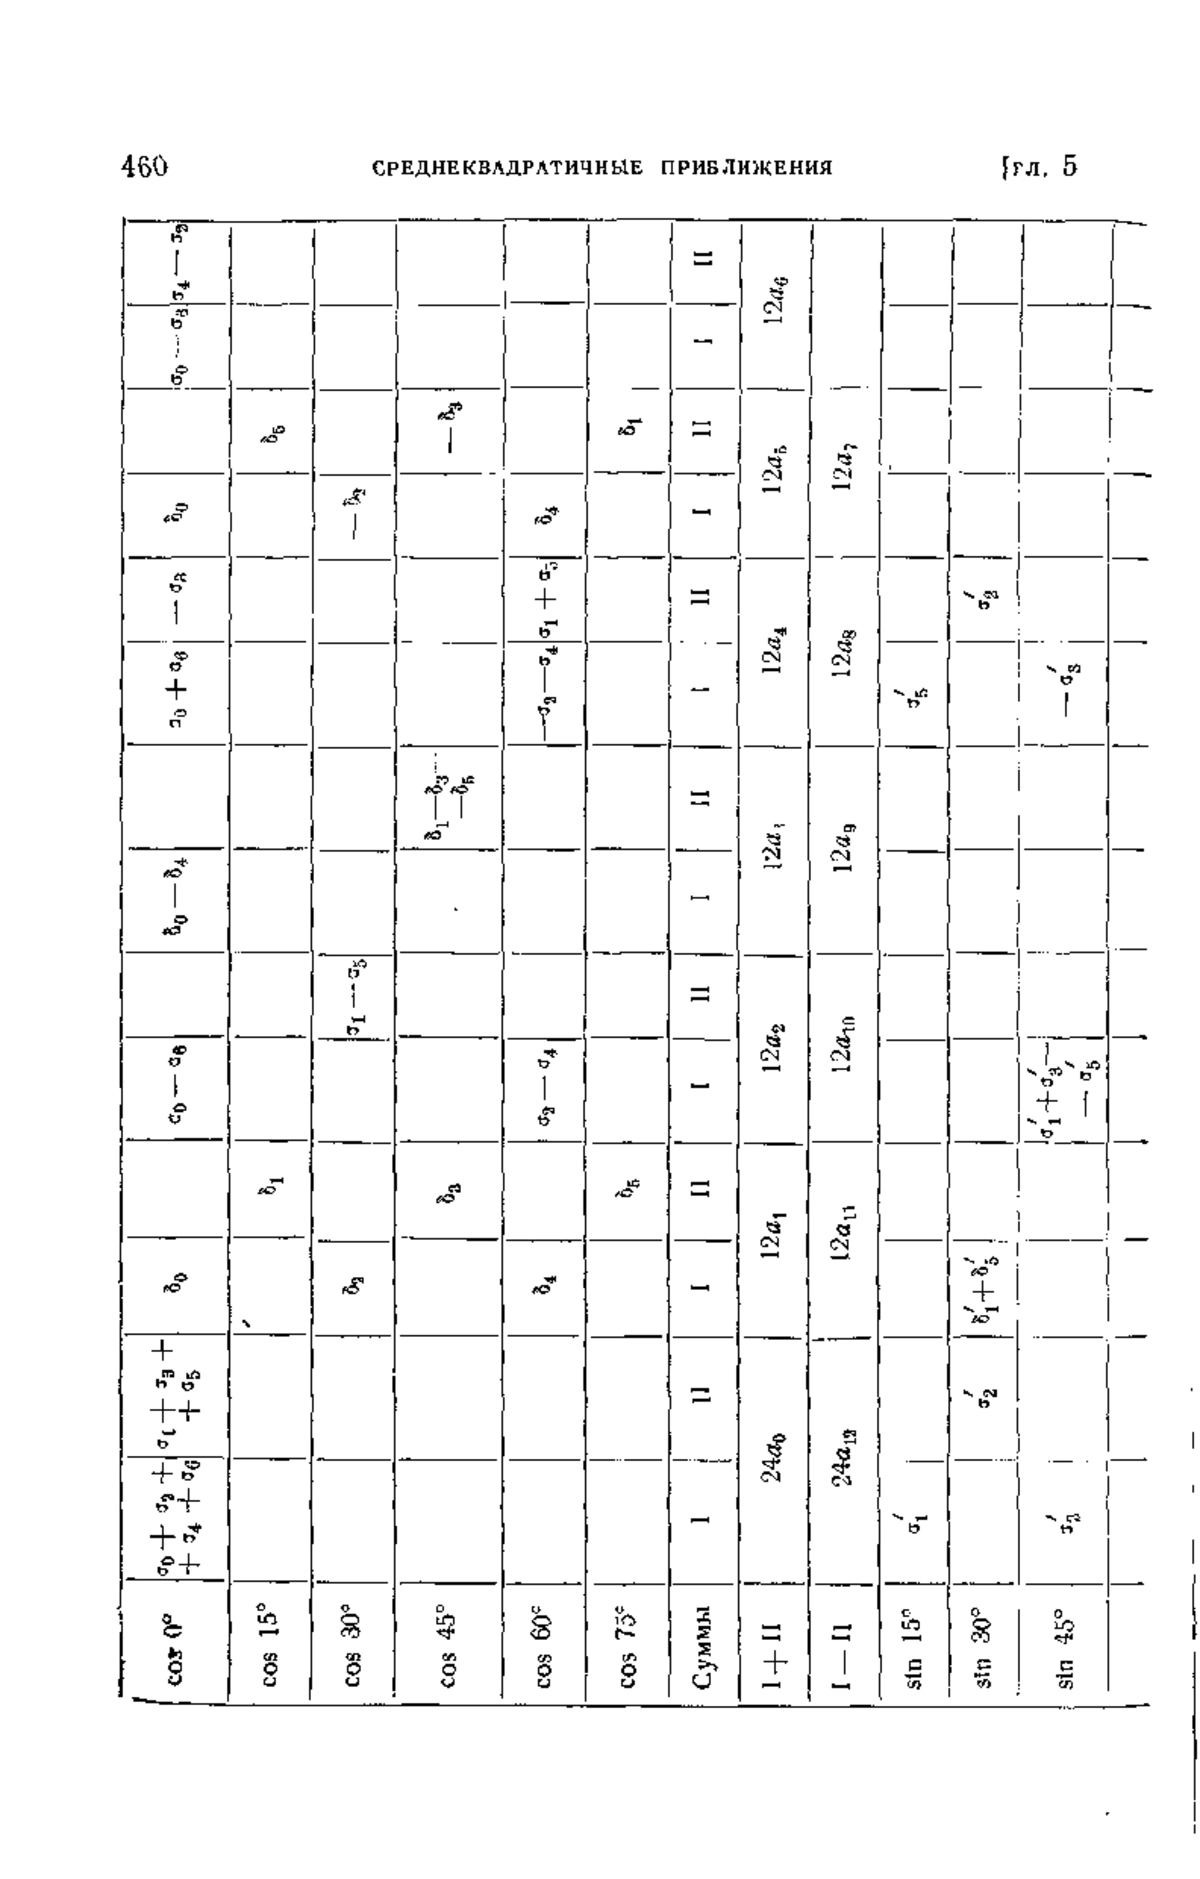 460 СРЕДНЕКВАДРАТИЧНЫЕ ПРИБЛИЖЕНИЯ [ГЛ. 5
cos 0° σ₀ + σ₂ + + σ₄ + σ₆ σ₁ + σ₃ + + σ₅ δ₀ σ₀ — σ₆ δ₀ — δ₄ σ₀ + σ₆ — σ₃ δ₀ σ₀ — σ₆ σ₄ — σ₂
cos 15° δ₁ δ₅
cos 30° δ₂ σ₁ — σ₅ — δ₂
cos 45° δ₃ δ₁—δ₃— —δ₅ — δ₃
cos 60° δ₄ σ₂ — σ₄ —σ₂—σ₄ σ₁ + σ₅ δ₄
cos 75° δ₅ δ₁
Суммы I II I II I II I II I II I II I II
I + II 24a₀ 12a₁ 12a₂ 12a₃ 12a₄ 12a₅ 12a₆
I — II 24a₁₂ 12a₁₁ 12a₁₀ 12a₉ 12a₈ 12a₇
sin 15° σ′₁ σ′₅
sin 30° σ′₂ δ′₁+δ′₅ σ′₂
sin 45° σ′₃ σ′₁+σ′₃— — σ′₅ — σ′₃